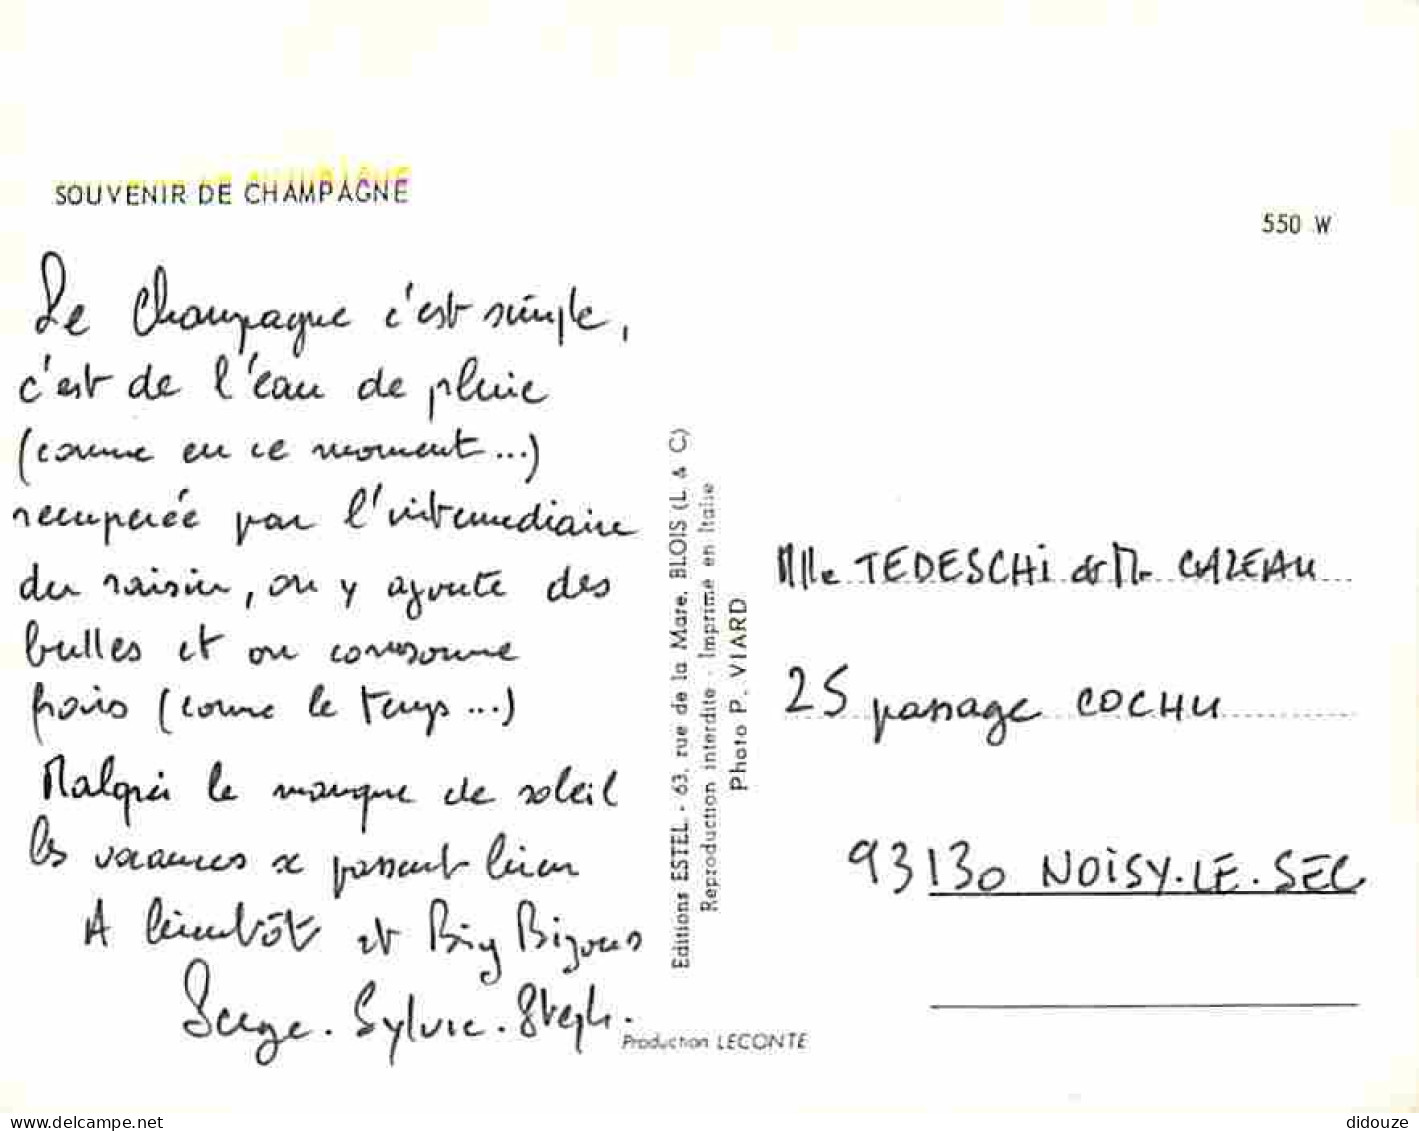 SOUVENIR DE CHAMPAGNE
550 W
Le Champagne c'est simple,
c'est de l'eau de pluie
(comme en ce moment...)
recuperée par l'intermediaire
du raisin, on y ajoute des
bulles et on consomme
frais (comme le temps...)
Malgré le manque de soleil
les vacances se passent bien
A bientôt et Big Bizous
Serge. Sylvie. Steph.
Editions ESTEL. - 63, rue de la Mare, BLOIS (L. & C.)
Reproduction interdite - Imprimé en Italie
Photo P. VIARD
Production LECONTE
Mlle TEDESCHi & Mr CAZEAU
25 passage COCHU
93130 NOiSY.LE.SEC
delcampe.net
didouze